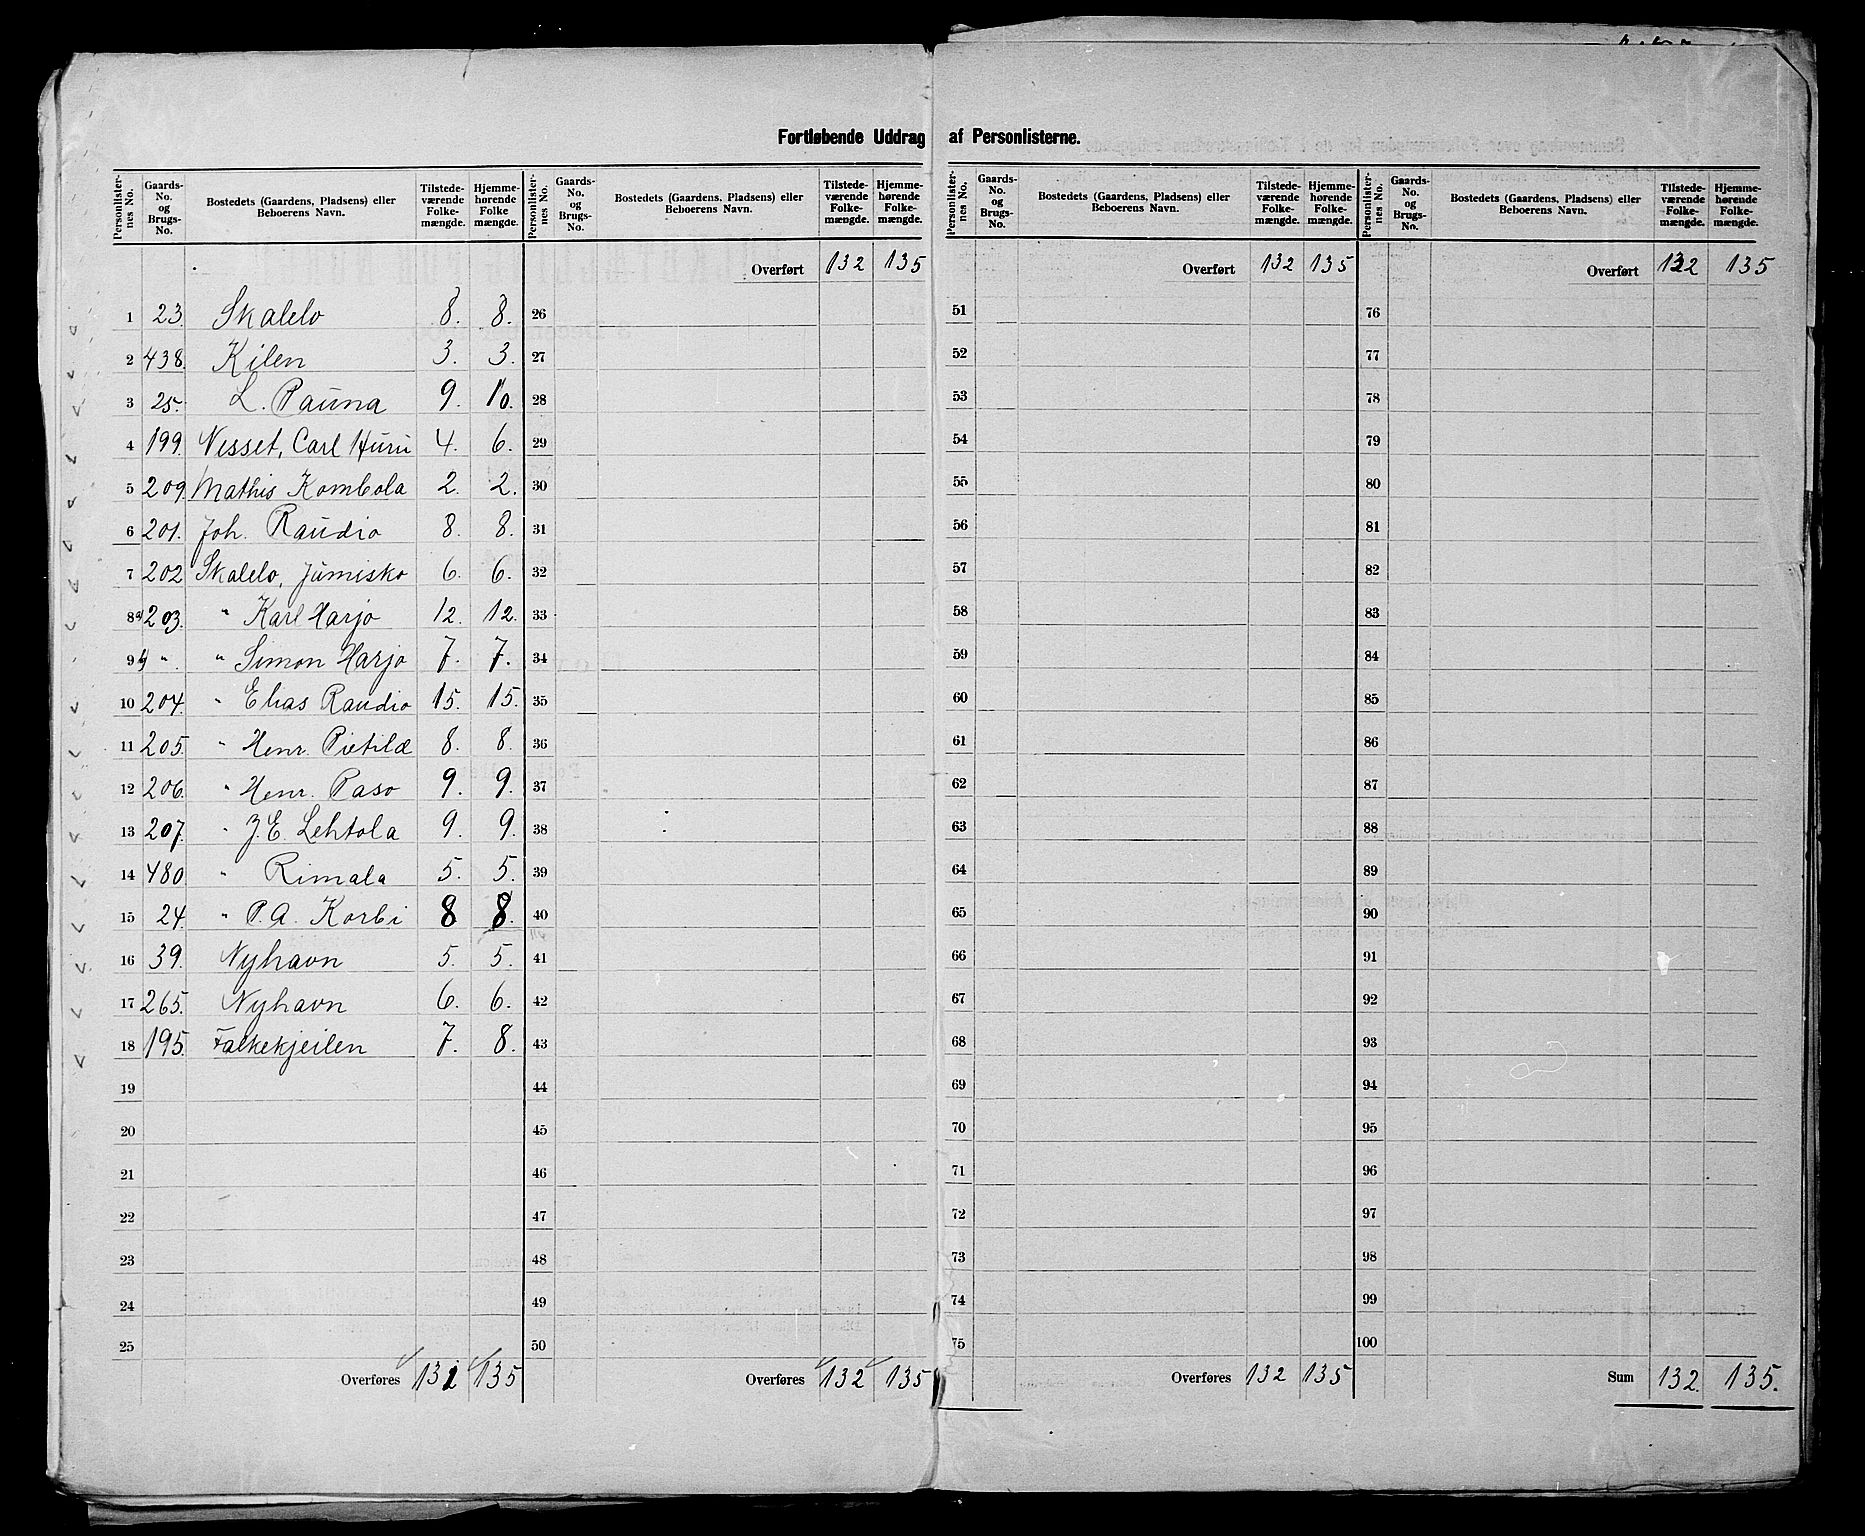 Fortløbende Uddrag af Personlisterne.
Personlister-nes No. | Gaards-No. og Brugs-No. | Bostedets (Gaardens, Pladsens) eller Beboerens Navn. | Tilstede-værende Folke-mængde. | Hjemme-hørende Folke mængde.
1 23. Skalelv 8. 8.
2 438. Kilen 3. 3.
3 25. L. Pauna 9. 10.
4 199. Nesset, Carl Huru 4. 6.
5 209. Mathis Kombola 2. 2.
6 201. Joh. Raudio 8. 8.
7 202 Skalelv, Jumisko 6. 6.
8 a) 203. " Karl Harjo 12. 12.
9 b) " . " Simon Harjo 7. 7.
10 204. " Elias Raudio 15. 15.
11 205. " Henr. Pietilæ 8. 8.
12 206. " Henr. Paso 9. 9.
13 207. " J. E. Lehtola 9. 9.
14 480. " Rimala 5. 5.
15 24. " P. A. Korbi 8 8.
16 39. Nyhavn 5. 5.
17 265. Nyhavn 6. 6.
18 195. Falkekjeilen 7. 8.
19
20
21
22
23
24
25
Overføres 132 135
Personlister-nes No. | Gaards-No. og Brugs-No. | Bostedets (Gaardens, Pladsens) eller Beboerens Navn. | Tilstede-værende Folke-mængde. | Hjemme-hørende Folke-mængde.
Overført 132 135
26
27
28
29
30
31
32
33
34
35
36
37
38
39
40
41
42
43
44
45
46
47
48
49
50
Overføres 132 135
Personlister-nes No. | Gaards-No. og Brugs-No. | Bostedets (Gaardens, Pladsens) eller Beboerens Navn. | Tilstede-værende Folke-mængde. | Hjemme-hørende Folke-mængde.
Overført 132 135
51
52
53
54
55
56
57
58
59
60
61
62
63
64
65
66
67
68
69
70
71
72
73
74
75
Overføres 132 135
Personlister-nes No. | Gaards-No. og Brugs-No. | Bostedets (Gaardens, Pladsens) eller Beboerens Navn. | Tilstede-værende Folke-mængde. | Hjemme-hørende Folke-mængde.
Overført 132 135
76
77
78
79
80
81
82
83
84
85
86
87
88
89
90
91
92
93
94
95
96
97
98
99
100
Sum 132. 135.